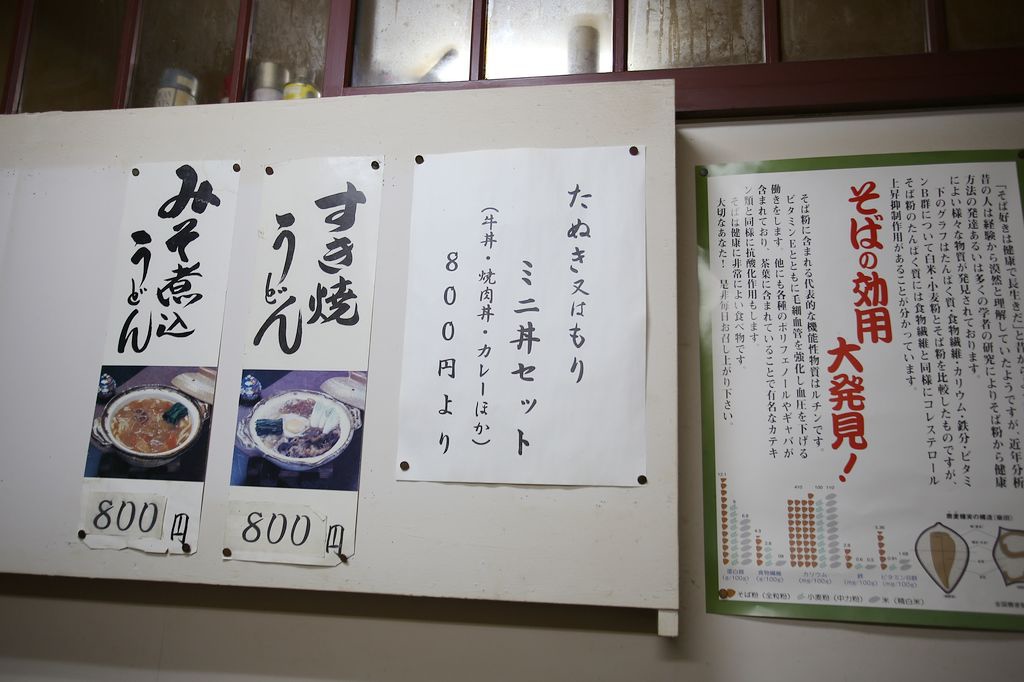 みそ煮込
うどん
800円
すき焼
うどん
800円
たぬき又はもり
ミニ丼セット
(牛丼・焼肉丼・カレーほか)
800円より
「そば好きは健康で長生きだ」と昔から
昔の人は経験から漠然と理解していたようですが、近年分析
方法の発達あるいは多くの学者の研究によりそば粉から健康
によい様々な物質が発見されております。
下のグラフはたんぱく質・食物繊維・カリウム・鉄分・ビタミ
ンB群について白米・小麦粉とそば粉を比較したものですが、
そば粉のたんぱく質には食物繊維と同様にコレステロール
上昇抑制作用があることが分かっています。
そばの効用
大発見!
そば粉に含まれる代表的な機能性物質はルチンです。
ビタミンEとともに毛細血管を強化し血圧を下げる
働きをします。他にも各種のポリフェノールやギャバが
含まれており、茶葉に含まれていることで有名なカテキ
ン類と同様に抗酸化作用もします。
そばは健康に非常によい食べ物です。
大切なあなた!是非毎日お召し上がり下さい。
蛋白質
(g/100g)
食物繊維
(g/100g)
カリウム
(mg/100g)
鉄
(mg/100g)
ビタミンB群
(mg/100g)
そば粉(全粒粉)
小麦粉(中力粉)
米(精白米)